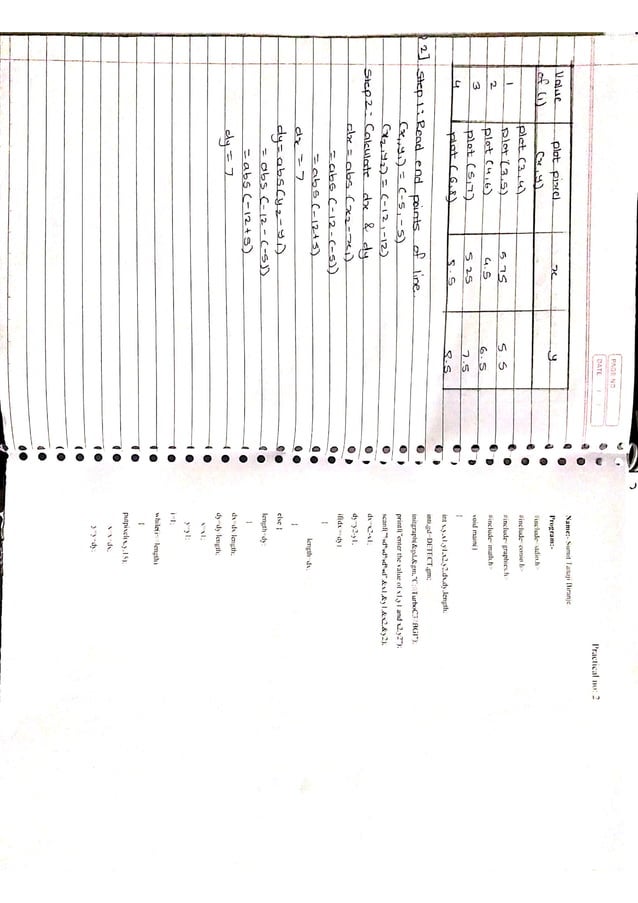 PAGE NO.
DATE / /
Value of (i) plot pixel (x,y) x y
plot (3,4)
1 plot (3,5) 5.75 5.5
2 plot (4,6) 4.5 6.5
3 plot (5,7) 5.25 7.5
4 plot (6,8) 8.5 8.5
2] Step 1: Read end points of line.
(x1,y1) = (-5,-5)
(x2,y2) = (-12,-12)
Step 2: Calculate dx & dy
dx = abs (x2-x1)
= abs (-12-(-5))
= abs (-12+5)
dx = 7
dy = abs (y2-y1)
= abs (-12-(-5))
= abs (-12+5)
dy = 7
Practical no: 2
Name:-
Program:-
#include<stdio.h>
#include<conio.h>
#include<graphics.h>
#include<math.h>
void main()
{
int x,y,x1,y1,x2,y2,dx,dy,length;
int gd=DETECT,gm;
initgraph(&gd,&gm,"C:\\TurboC3\\BGI");
printf("enter the value of x1,y1 and x2,y2");
scanf("%d%d%d%d",&x1,&y1,&x2,&y2);
dx=x2-x1;
dy=y2-y1;
if(dx>=dy)
{
length=dx;
}
else {
length=dy;
}
dx=dx/length;
dy=dy/length;
x=x1;
y=y1;
i=1;
while(i<=length)
{
putpixel(x,y,15);
x=x+dx;
y=y+dy;